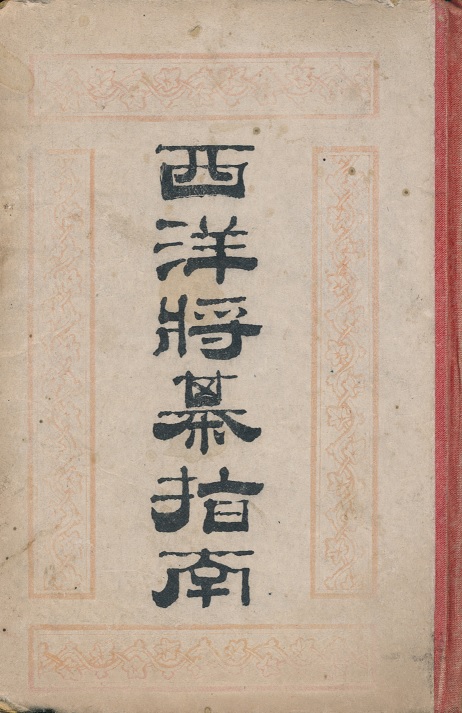 西洋將棊指南